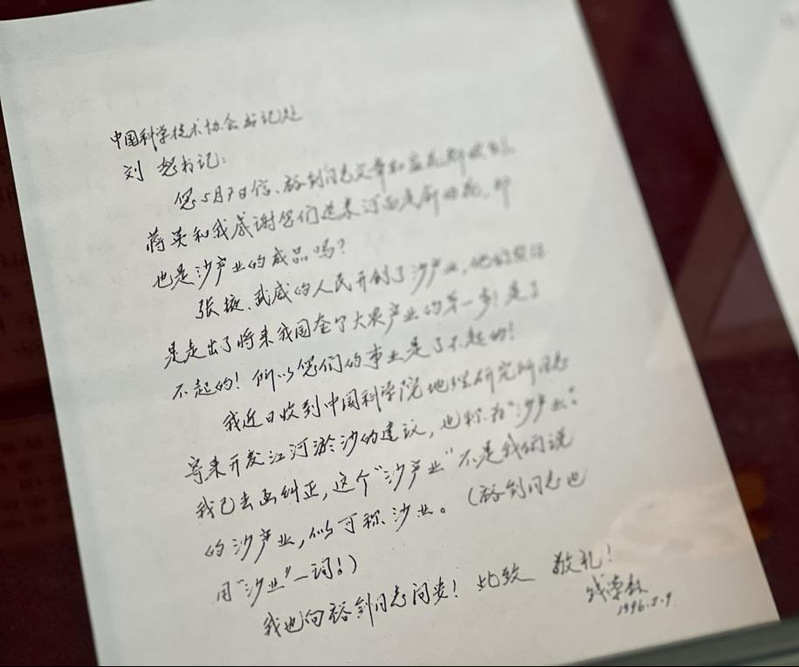 中国科学技术协会书记处
刘恕书记：
您5月7日信、裕剑同志文章和
蒋英和我感谢您们送来河西走廊的花，那
也是沙产业的成品吗？
张掖、武威的人民开创了沙产业，他们
是走出了将来我国奎个大农产业的第一步！是了
不起的！所以您们的事业是了不起的！
我近日收到中国科学院地理研究所同志
寄来开发江河淤沙的建议，也称为“沙产业”。
我已去函纠正，这个“沙产业”不是我们说
的沙产业，似可称沙业。（裕剑同志也
用“沙业”一词！）
我也向裕剑同志问安！此致 敬礼！
钱学森
1996.5.9